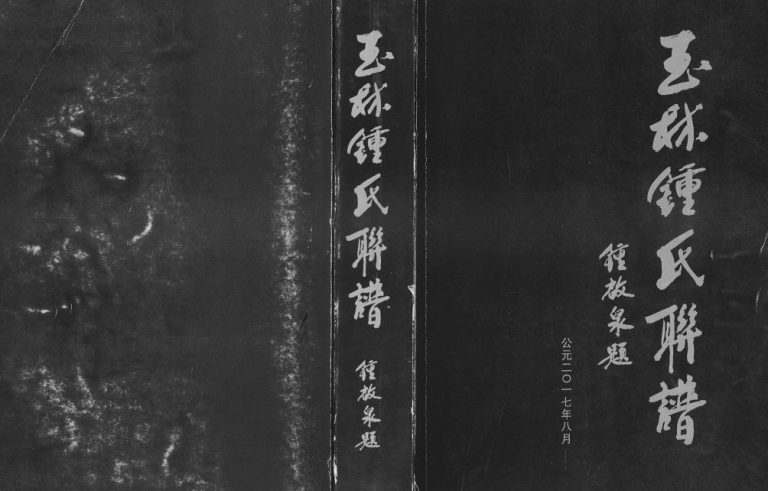 玉林鍾氏聯譜
鍾放泉題
公元二〇一七年八月
玉林鍾氏聯譜
鍾放泉題